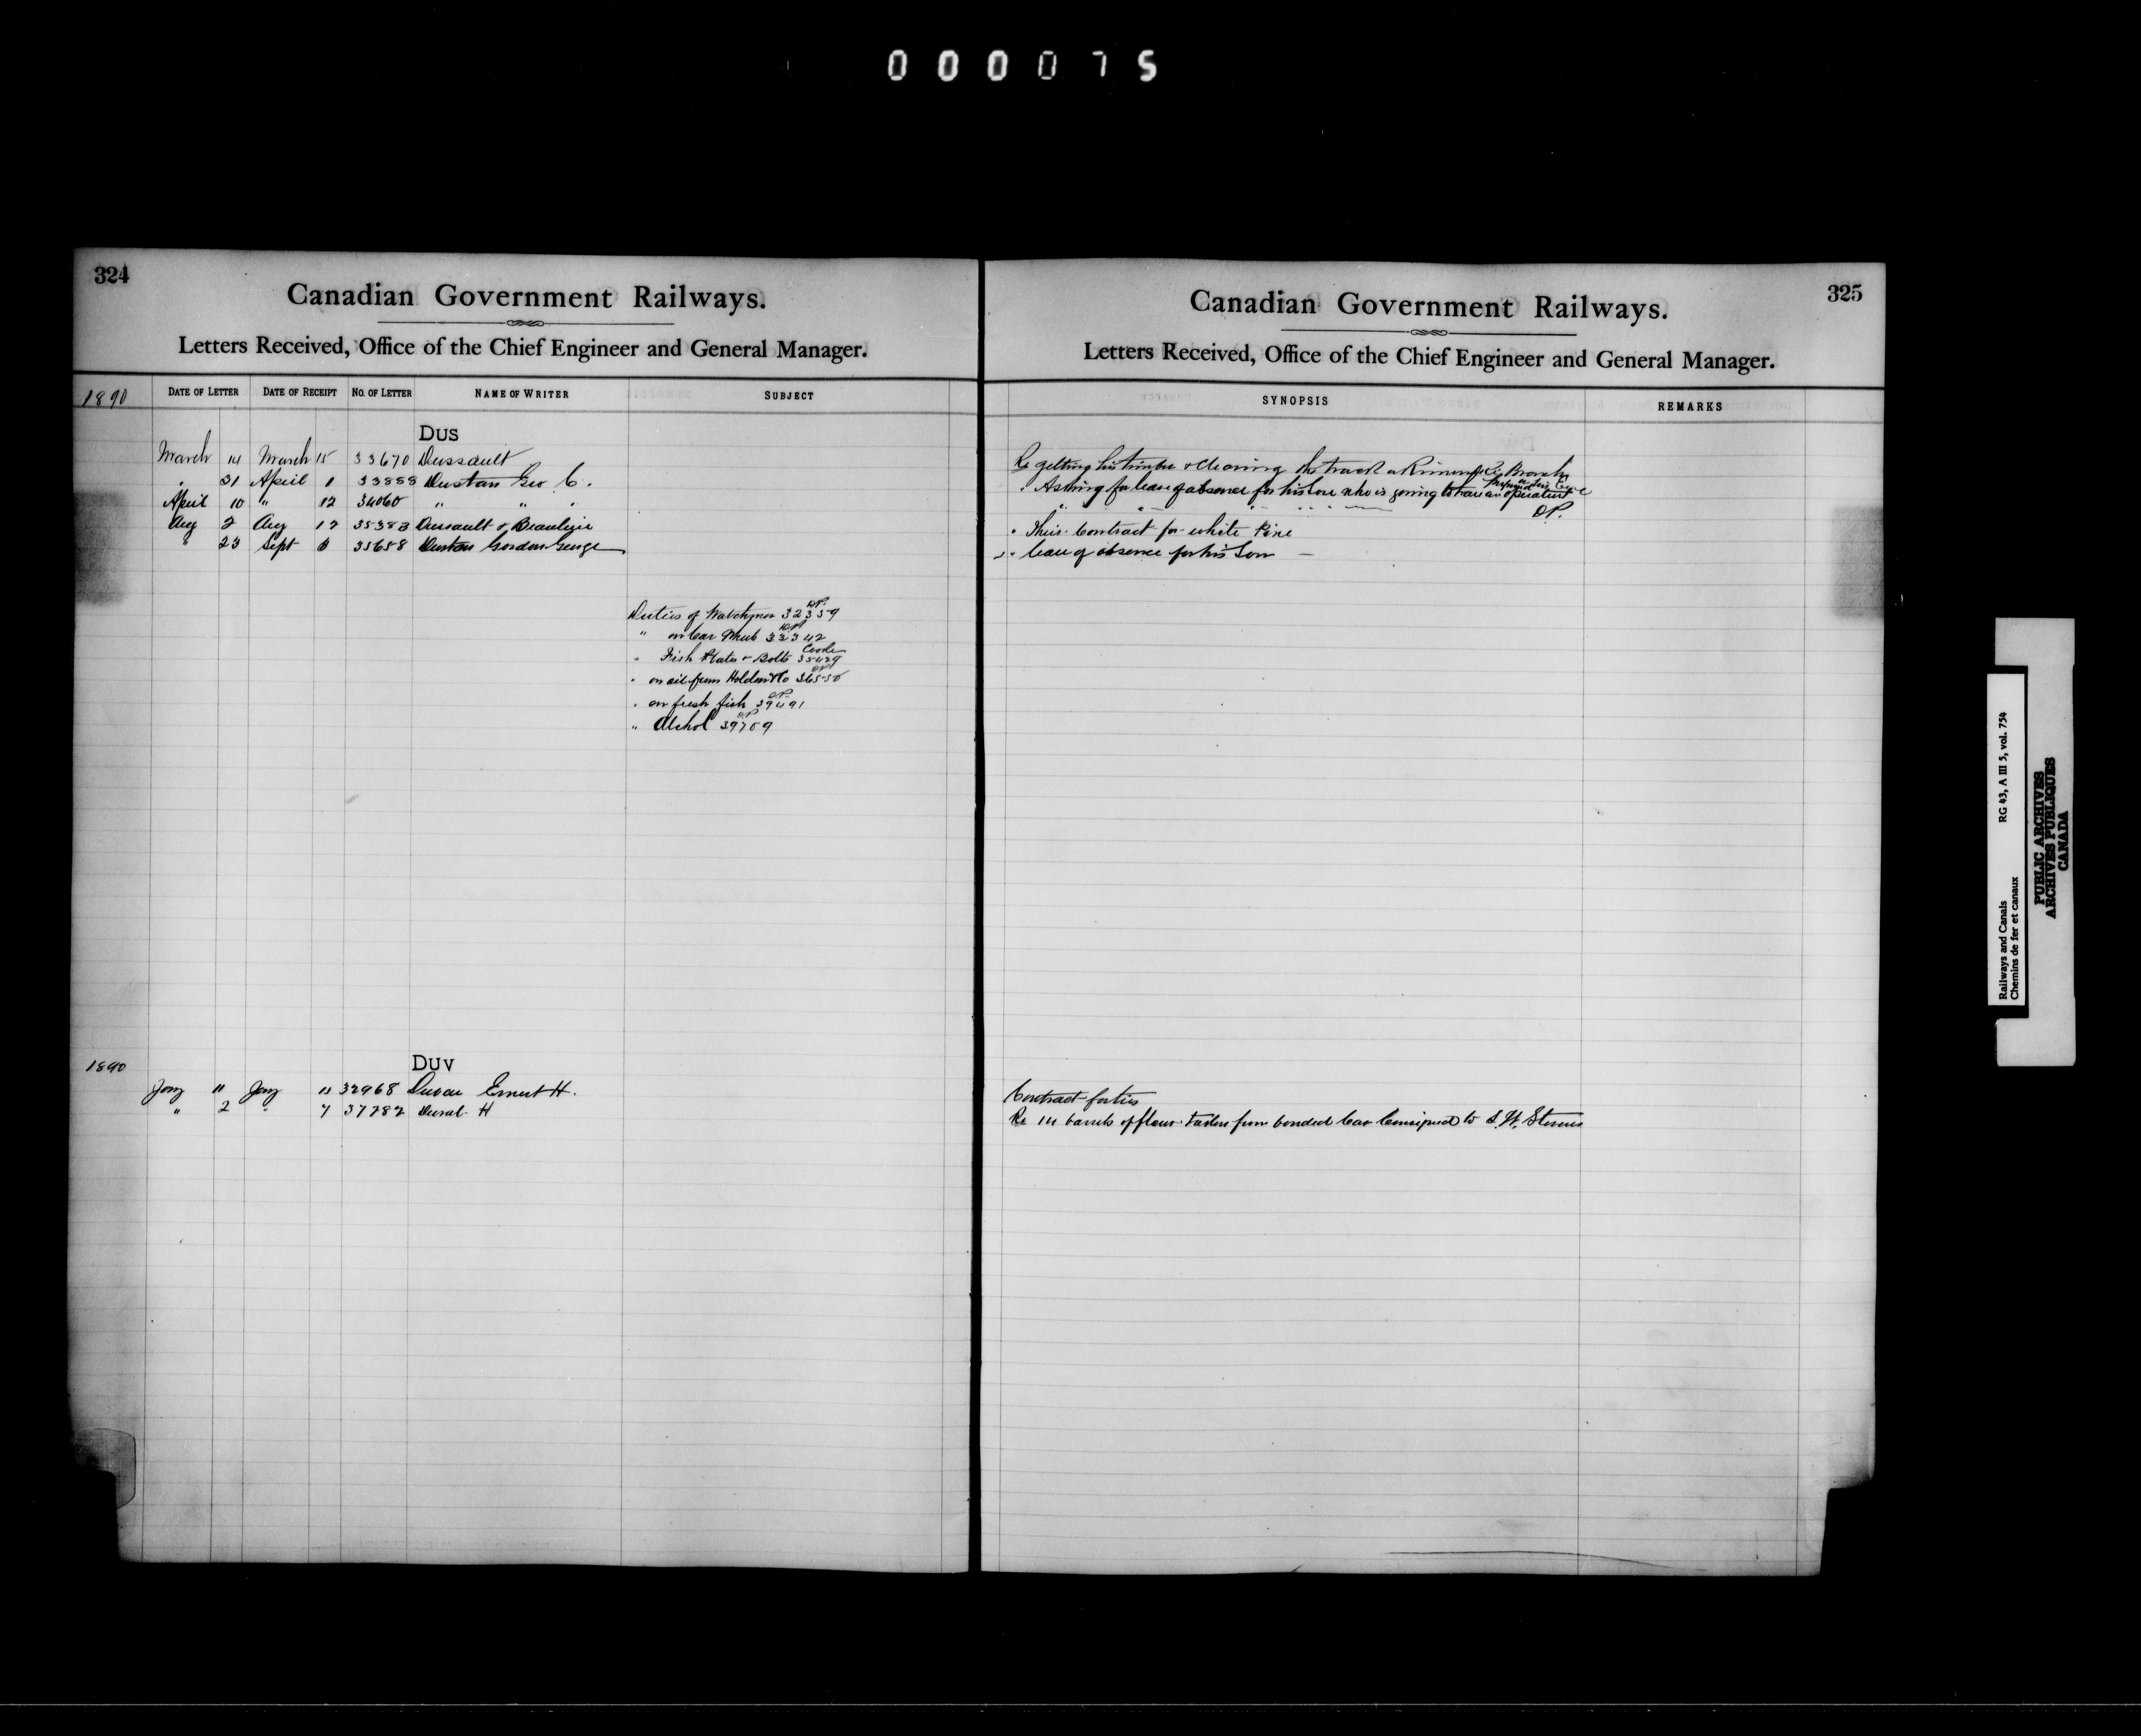 000075
324
Canadian Government Railways.
Letters Received, Office of the Chief Engineer and General Manager.
1890 DATE OF LETTER DATE OF RECEIPT NO. OF LETTER NAME OF WRITER SUBJECT
DUS
March 14 March 15 33670 Dussault
" 31 April 1 33888 Dustan Geo C.
April 10 " 12 34060 " " "
Aug 2 Aug 12 35383 Dussault &
" 23 Sept 35658 Dustan Gordon George
Duties of Watchmen 32359 DP.
" on Car 33342
" Fish Plates & Bolts 35429
" on oil from 36550
" on fresh fish 39491 DP.
" Alchol 39709 DP
1890
DUV
Jany 11 Jany 32968 Ernest H.
" 2 " 7 37282 Duval H
325
Canadian Government Railways.
Letters Received, Office of the Chief Engineer and General Manager.
SYNOPSIS REMARKS
Re getting his timber & Clearing the track
" Asking for leave of absence for his son who is going to have an operation
DP.
" Their Contract for white Pine
" leave of absence for his Son
Contract for ties
Re 14 barrels of flour taken from bonded Car Consigned to
Railways and Canals RG 43, A III 5, vol. 754
Chemins de fer et canaux
PUBLIC ARCHIVES
ARCHIVES PUBLIQUES
CANADA